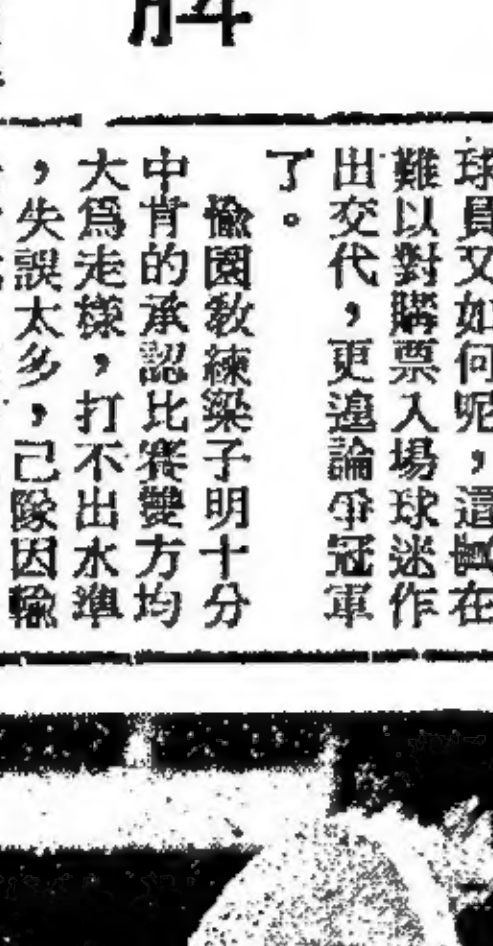 脺
球員又如何呢,這實在
難以對購票入場球迷作
出交代,更遑論爭冠軍
了。
愉園教練梁子明十分
中肯的承認比賽雙方均
大爲走樣,打不出水準
,失誤太多,己隊因輸